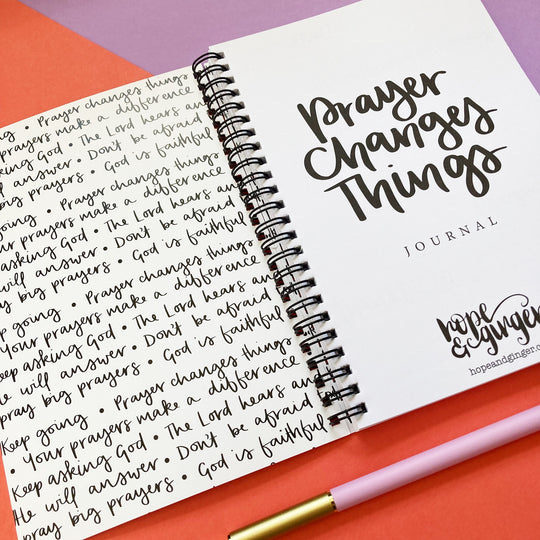 • Prayer changes things
prayers make a difference
asking God • The Lord hears and
will answer • Don't be afraid
big prayers • God is faithful
going • Prayer changes things
our prayers make a difference
asking God • The Lord hears and
will answer • Don't be afraid
y big prayers • God is faithful
p going • Prayer changes things
Your prayers make a difference
eep asking God • The Lord hears and
He will answer • Don't be afraid
pray big prayers • God is faithful
Keep going • Prayer changes things
• Your prayers make a difference
Keep asking God • The Lord hears an
He will answer • Don't be afraid
pray big prayers • God is faithful
Prayer
Changes
Things
JOURNAL
hope
& ginger
hopeandginger.c